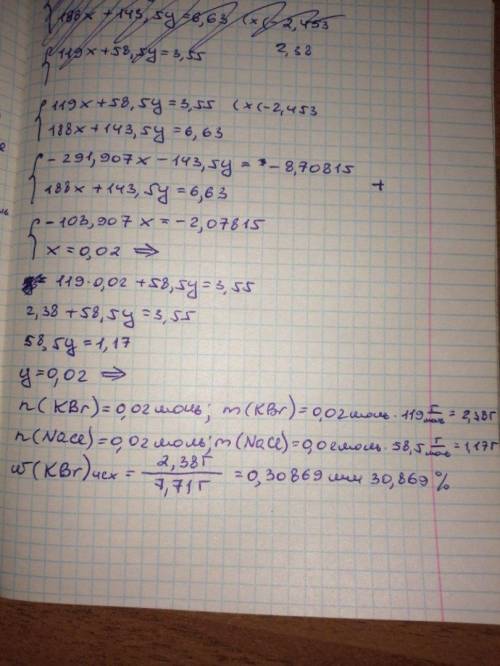 188x + 143,5y = 6,63 (x(-2,453
119x + 58,5y = 3,55 2,38
119x + 58,5y = 3,55 (x(-2,453
188x + 143,5y = 6,63
-291,907x - 143,5y = -8,70815
188x + 143,5y = 6,63 +
-103,907x = -2,07815
x = 0,02 ⇒
119·0,02 + 58,5y = 3,55
2,38 + 58,5y = 3,55
58,5y = 1,17
y = 0,02 ⇒
n(KBr) = 0,02 моль; m(KBr) = 0,02 моль · 119 г/моль = 2,38г
n(NaCl) = 0,02 моль; m(NaCl) = 0,02 моль · 58,5 г/моль = 1,17г
w(KBr)исх = 2,38г / 7,71г = 0,30869 или 30,869 %